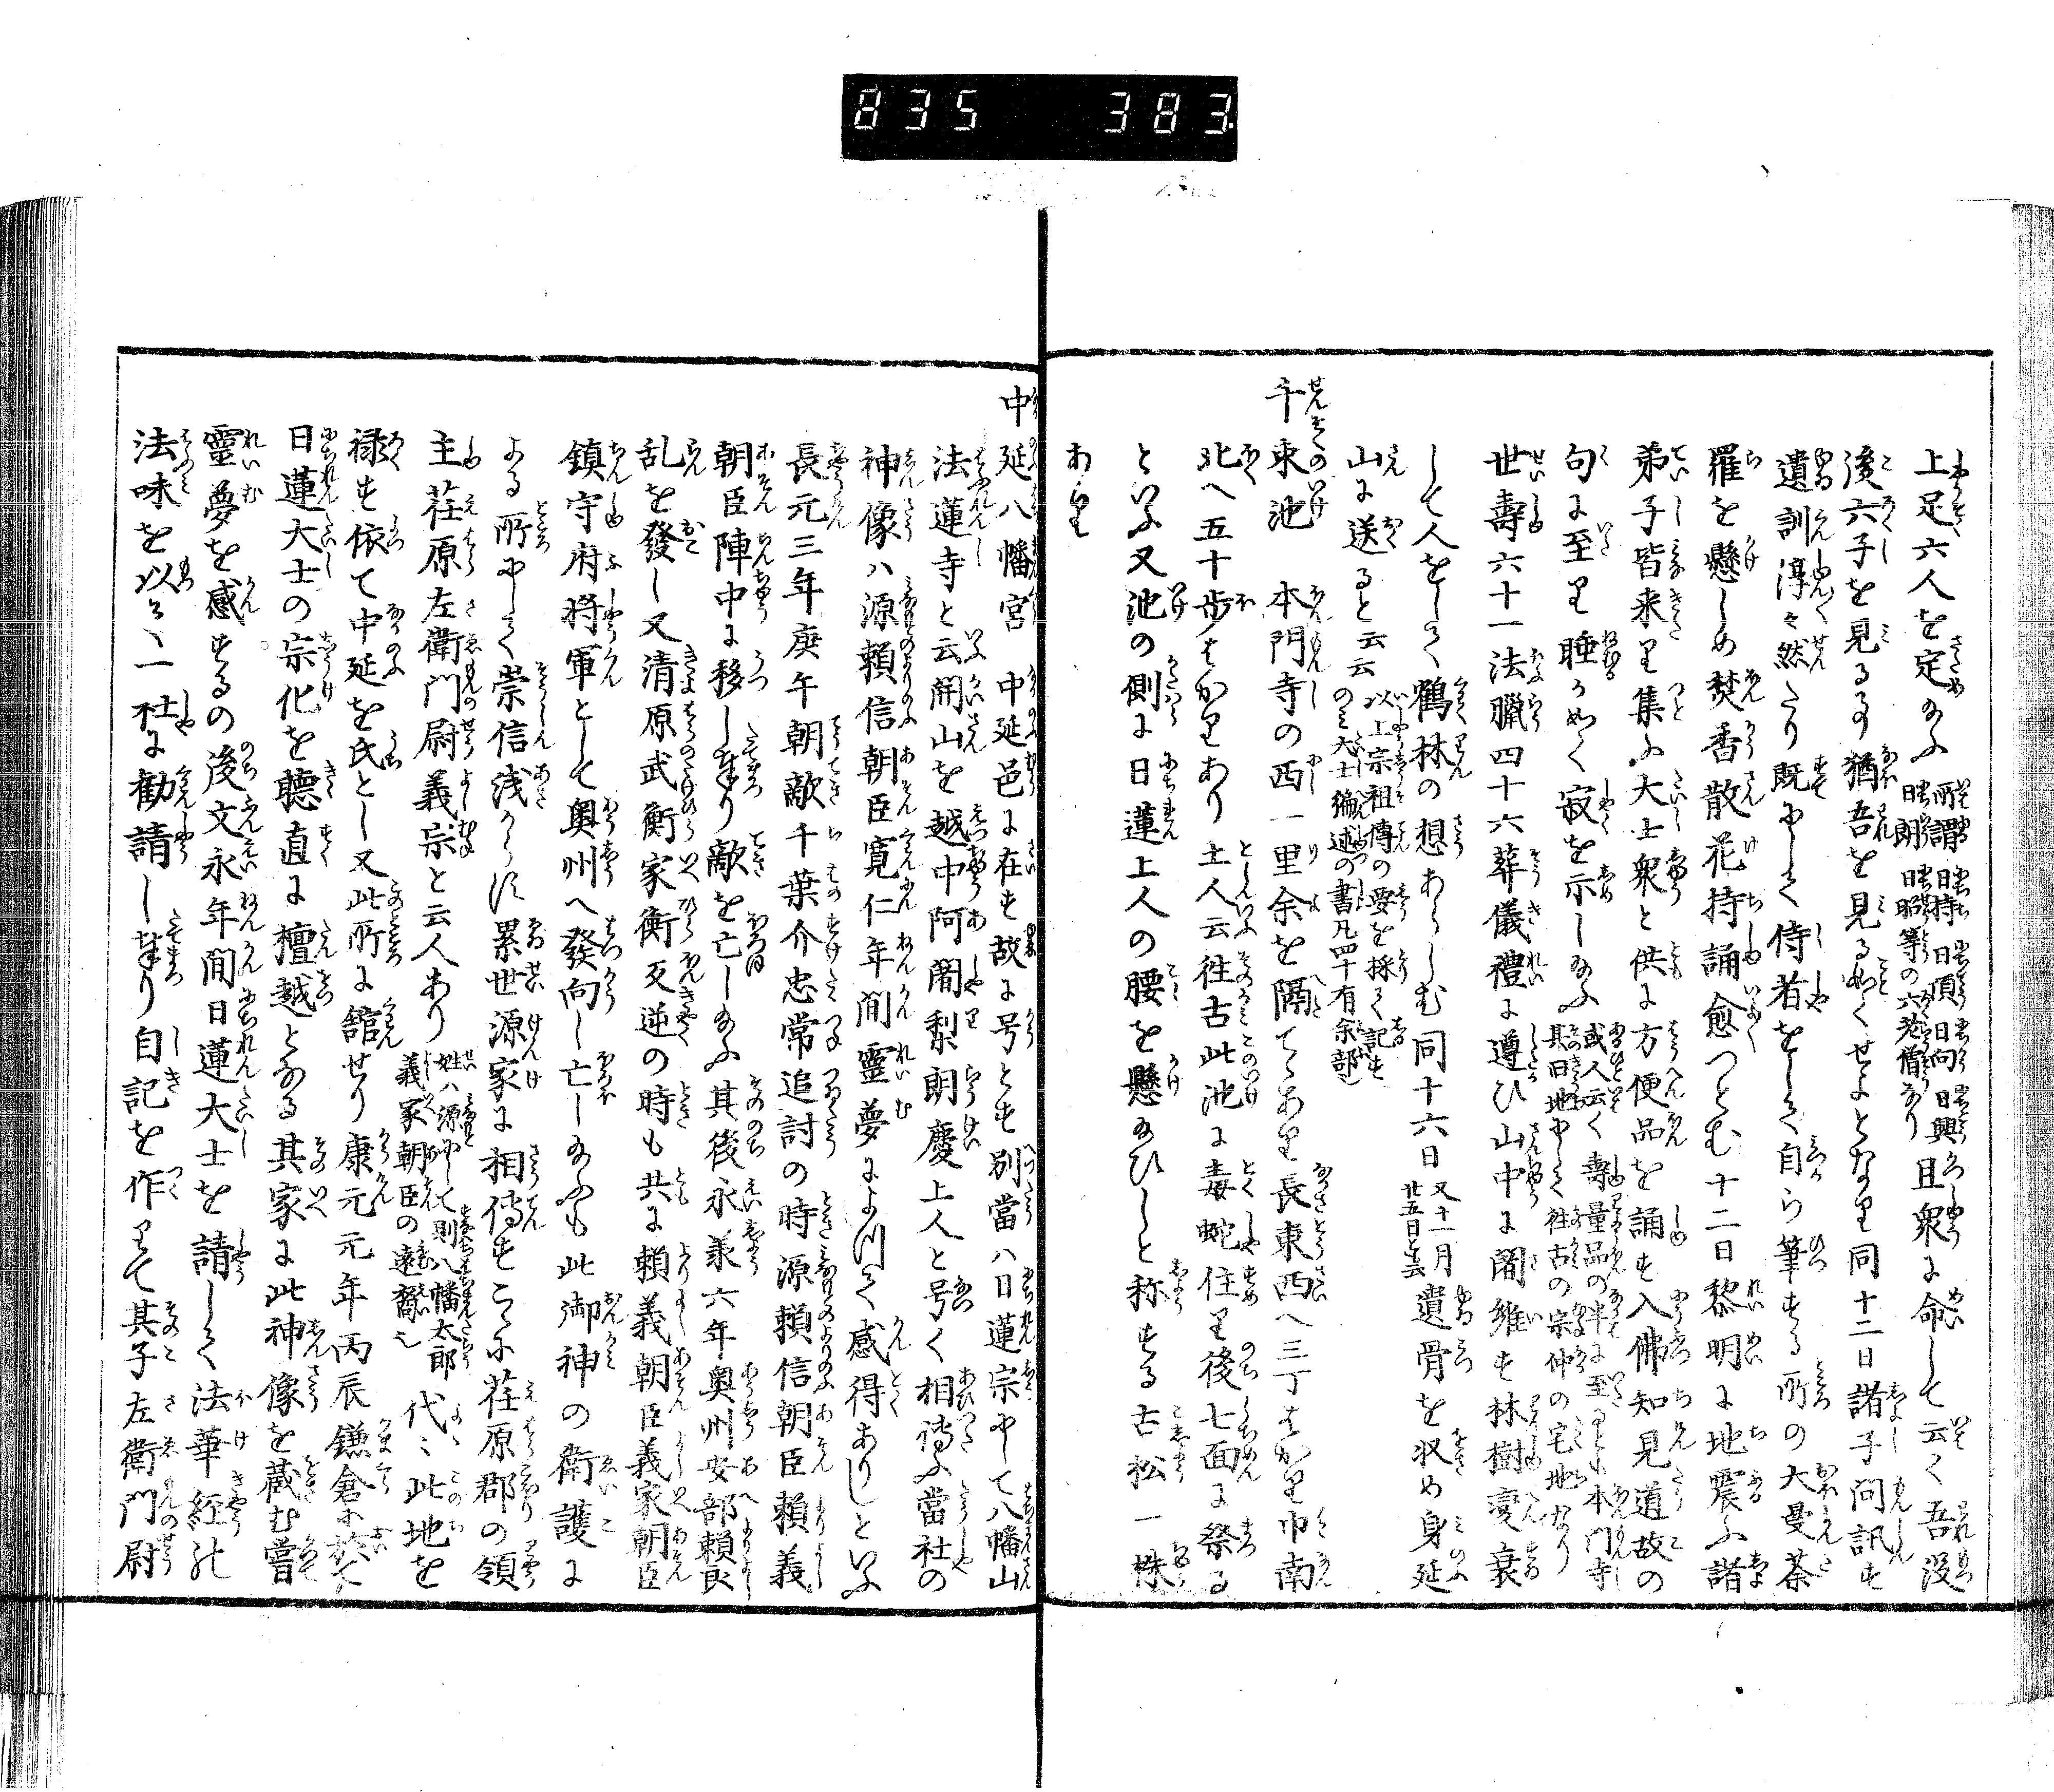 835 383
上足六人を定めたまふ所謂日持日頂日向日興日朗日昭等の六老僧なり且衆に命して云く吾没
後六子を見るる猶吾を見る如くせよとなり同十二日諸子問訊す
遺訓淳々然たり既にして侍者をして自ら筆する所の大曼荼
羅を懸しめ焚香散花持誦愈つとむ十二日黎明に地震ふ諸
弟子皆来り集ふ大士衆と供に方便品を誦す入佛知見道故の
句に至り睡るか如く寂を示したまふ或人云く壽量品の半に至りしと本門寺其旧地にして往古の宗仲の宅地なり
世壽六十一法臘四十六葬儀禮に遵ひ山中に闍維す林樹変衰
して人をして鶴林の想あらしむ同十六日又十一月廿五日云云遺骨を収め身延
山に送ると云云以上宗祖傳の要を採て記すのミ大士編述の書凡四十有余部也
千束池 本門寺の西一里余を隔てゝあり長東西へ三丁はかり巾南
北へ五十歩はかりあり土人云往古此池に毒蛇住り後七面に祭る
といふ又池の側に日蓮上人の腰を懸たまひしと称する古松一株
あり
中延八幡宮 中延邑に在す故に号とす別當ハ日蓮宗にして八幡山
法蓮寺と云開山を越中阿闍梨朗慶上人と号く相傳ふ當社の
神像ハ源頼信朝臣寛仁年間靈夢によつて感得ありしといふ
長元三年庚午朝敵千葉介忠常追討の時源頼信朝臣頼義
朝臣陣中に移し奉り敵を亡したまふ其後永承六年奥州安部頼良
乱を發し又清原武衡家衡反逆の時も共に頼義朝臣義家朝臣
鎮守府将軍として奥州へ發向し亡したまふも此御神の衛護に
よる所にして崇信浅からす累世源家に相傳すこゝに荏原郡の領
主荏原左衛門尉義宗と云人あり姓ハ源にして則八幡太郎義家朝臣の遠裔也代々此地を
禄す依て中延を氏とし又此所に舘せり康元元年丙辰鎌倉に於て
日蓮大士の宗化を聴直に檀越となる其家に此神像を蔵む嘗
靈夢を感するの後文永年間日蓮大士を請して法華経の
法味を以て一社に勧請し奉り自記を作りて其子左衛門尉